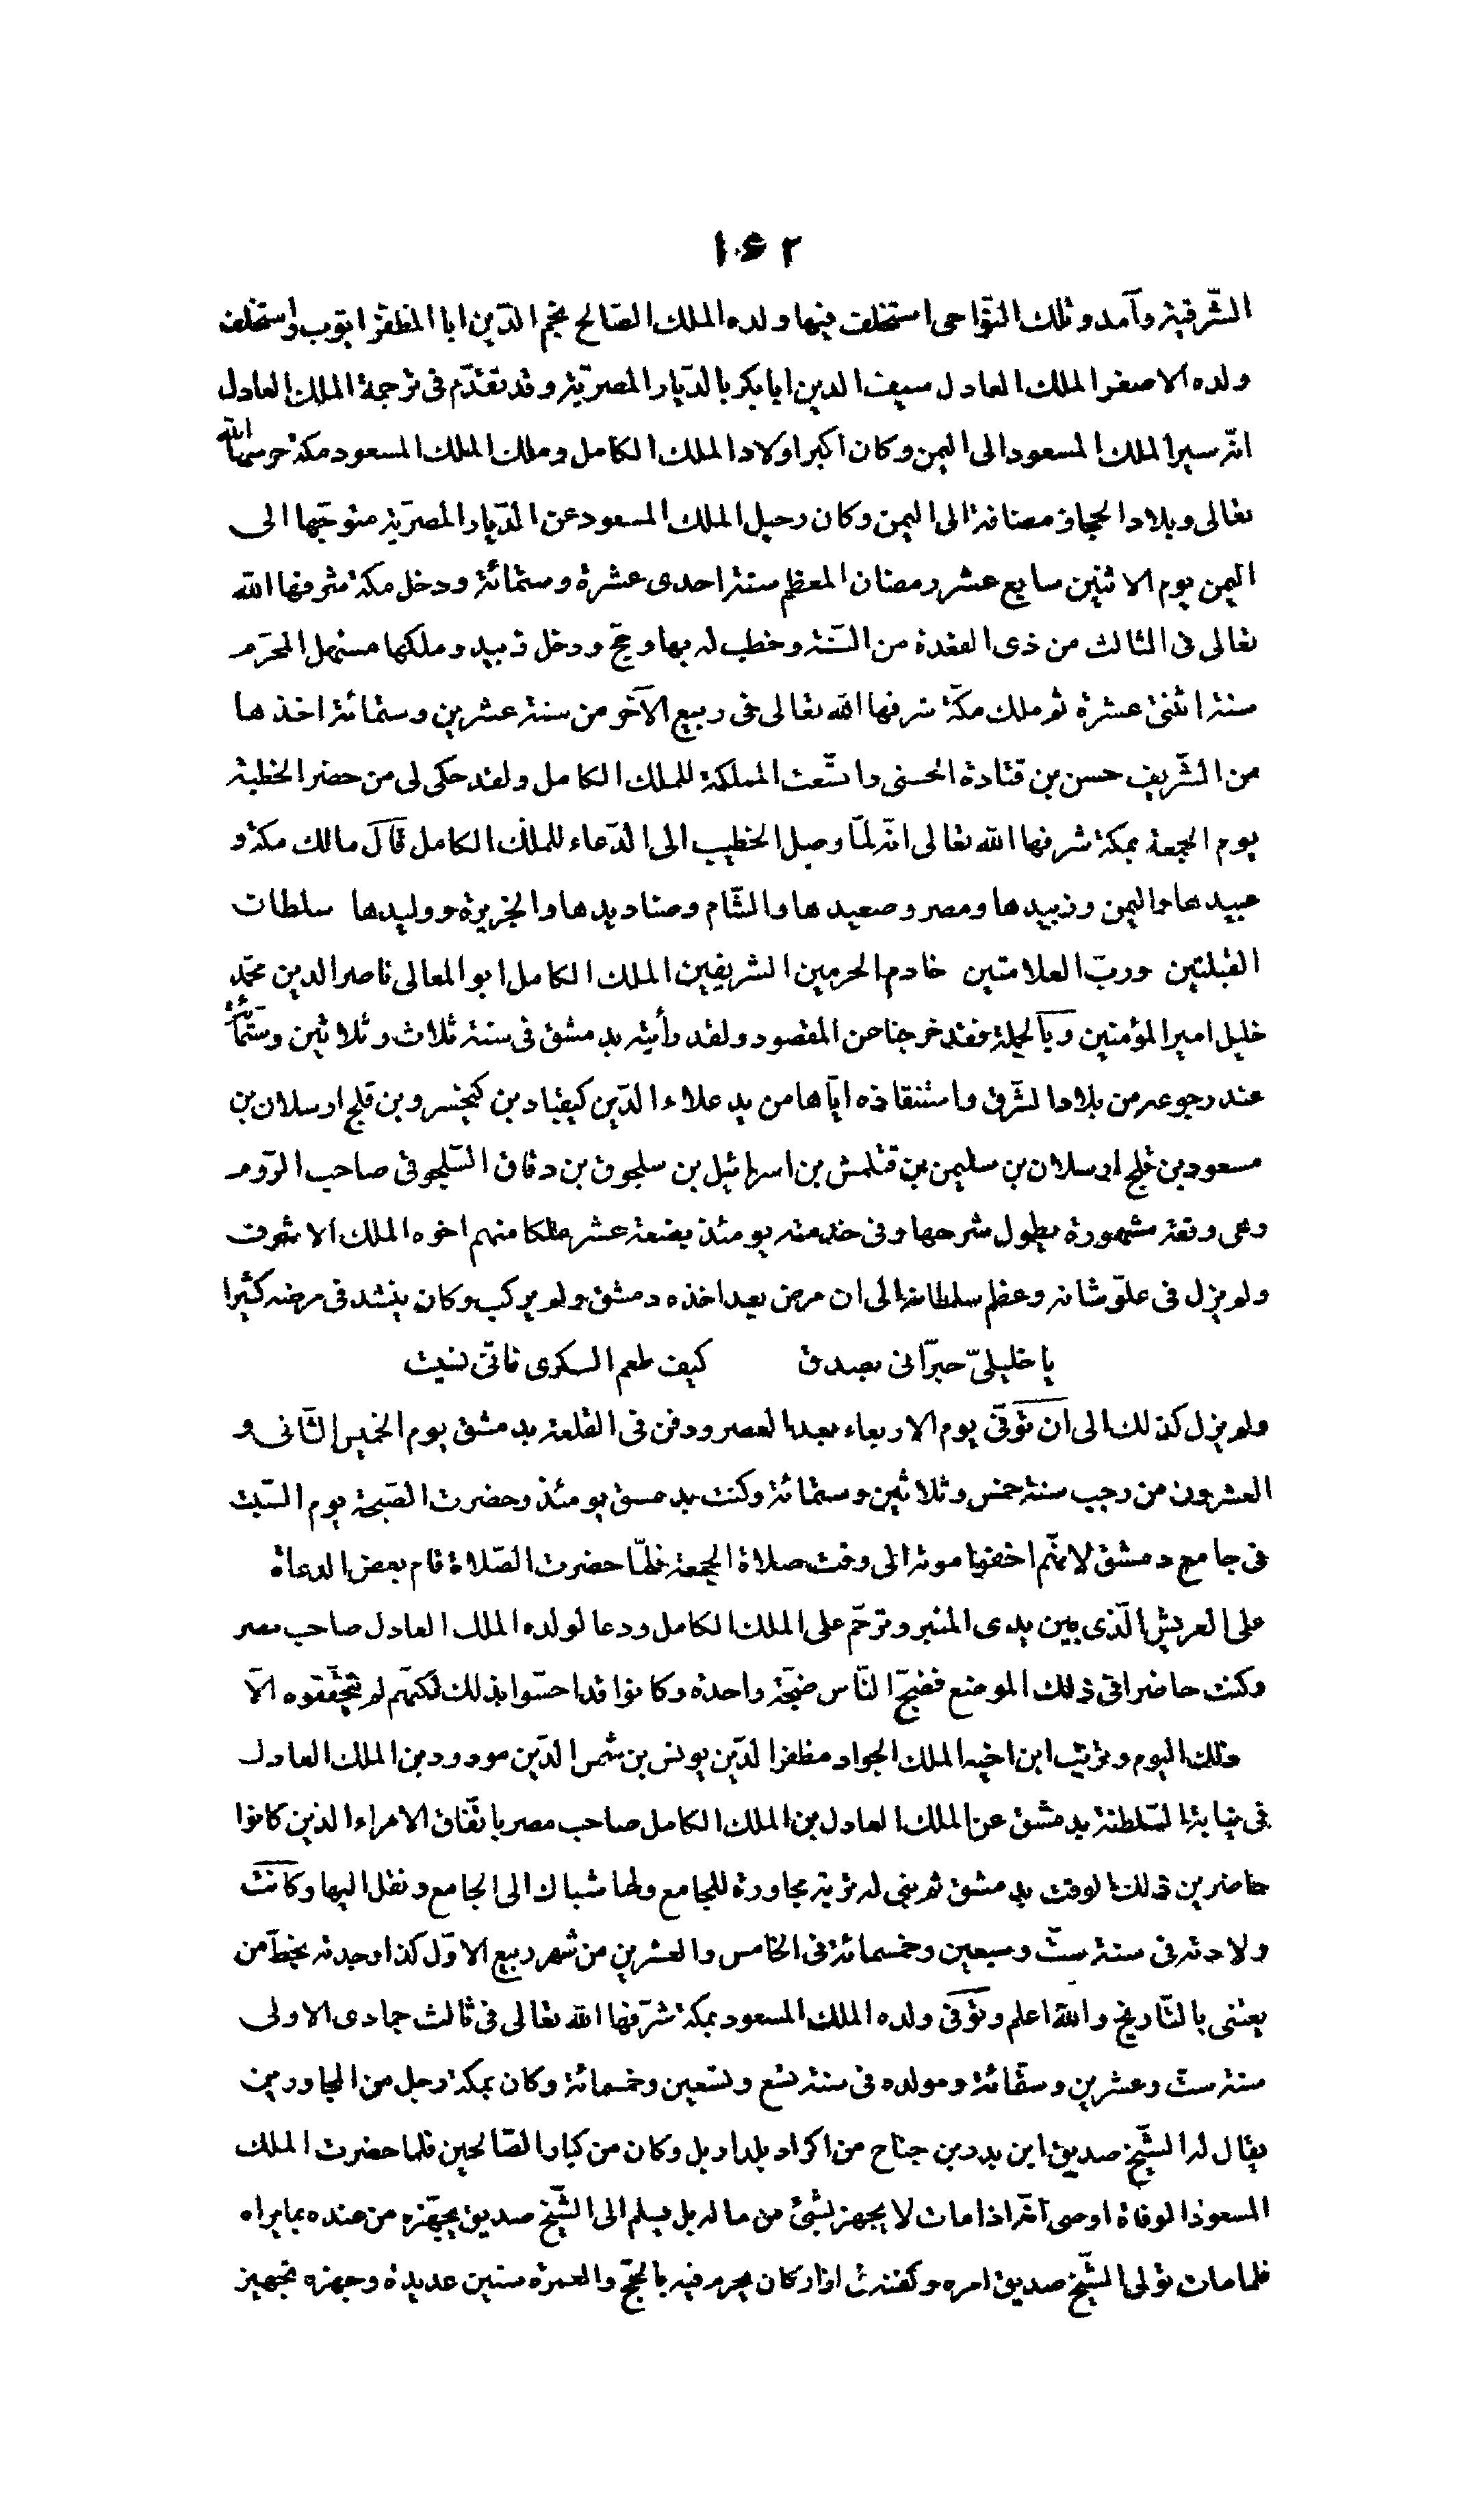 ١٠۶٢
الشّرقية وآمد وتلك النّواحى استخلف فيها ولده الملك الصّالح نجم الدّين ابا المظفر ايّوب واستخلف
ولده الاصغر الملك العادل سيف الدين ابا بكر بالدّيار المصريّة وقد تقدّم فى ترجمة الملك العادل
انّه سير الملك المسعود الى اليمن وكان اكبر اولاد الملك الكامل وملك الملك المسعود مكة حرسها الله
تعالى وبلاد الحجاز مضافة الى اليمن وكان رحيل الملك المسعود عن الدّيار المصرّية متوجّها الى
اليمن يوم الاثنين سابع عشر رمضان المعظم سنة احدى عشرة وستمائة ودخل مكة شرفها الله
تعالى فى الثالث من ذى القعدة من السّنة وخطب له بها وحجّ ودخل زبيد وملكها مستهل المحرّم
سنة اثنتى عشرة ثم ملك مكّة شرفها الله تعالى فى ربيع الآخر من سنة عشرين وستمائة اخذها
من الشّريف حسن بن قتادة الحسنى واتّسعت المملكة للملك الكامل ولقد حكى لى من حضر الخطبة
يوم الجمعة بمكة شرفها الله تعالى انّه لمّا وصل الخطيب الى الدّعاء للملك الكامل قال مالك مكة و
عبيدها واليمن وزبيدها ومصر وصعيدها والشّام وصناديدها والجزيرة ووليدها سلطان
القبلتين وربّ العلامتين خادم الحرمين الشريفين الملك الكامل ابو المعالى ناصر الدين محمّد
خليل امير المؤمنين وبالجملة فقد خرجنا عن المقصود ولقد رأيته بدمشق فى سنة ثلاث وثلاثين وستّمائة
عند رجوعه من بلاد الشّرق واستنقاذه ايّاها من يد علاء الدّين كيقباد بن كيخسرو بن قلج ارسلان بن
مسعود بن قلج ارسلان بن سليمن بن قتلمش بن اسرائيل بن سلجوق بن دقاق السّلجوقى صاحب الرّوم
وهى وقعة مشهورة يطول شرحها وفى خدمته يومئذ بضعة عشر ملكا منهم اخوه الملك الاشرف
ولم يزل فى علوّ شانه وعظم سلطانه الى ان مرض بعد اخذه دمشق ولم يركب وكان ينشد فى مرضه كثيرا
يا خليلىّ خبّرانى بصدق كيف طعم السكرى فانّى نسيت
ولم يزل كذلك الى ان توّفى يوم الاربعاء بعد العصر ودفن فى القلعة بدمشق يوم الخميس الثّانى و
العشرون من رجب سنة خمس وثلاثين وستمائة وكنت بدمسق يومئذ وحضرت الصّبحة يوم السّبت
فى جامع دمشق لانهّم اخفوا موته الى وقت صلاة الجمعة فلمّا حضرت الصّلاة قام بعض الدعاة
على العريش الّذى بين يدى المنبر وترحّم على الملك الكامل ودعا لولده الملك العادل صاحب مصر
وكنت حاضرا فى ذلك الموضع فضجّ النّاس ضجّة واحدة وكانوا قد احسّوا بذلك لكنهّم لم يتحقّقوه الاّ
ذلك اليوم وترتيب ابن اخيه الملك الجواد مظفر الدّين يونس بن شمس الدّين مودود بن الملك العادل
فى نيابة السّلطنة بدمشق عن الملك العادل بن الملك الكامل صاحب مصر باتّفاق الامراء الذين كانوا
حاضرين ذلك الوقت بدمشق ثم بنى له تربة مجاورة للجامع ولها شباك الى الجامع ونقل اليها وكانت
ولادته فى سنة ستّ وسبعين وخمسمائة فى الخامس والعشرين من شهر ربيع الاوّل كذا وجدته بخطّ من
يعتنى بالتّاريخ والله اعلم وتوّفى ولده الملك المسعود بمكة شرّفها الله تعالى فى ثالث جمادى الاولى
سنة ستّ وعشرين وستمائة ومولده فى سنة تسع وتسعين وخمسمائة وكان بمكة رجل من المجاورين
يقال له الشّيخ صديق ابن بدر بن جناح من اكراد بلد اربل وكان من كبار الصّالحين فلما حضرت الملك
المسعود الوفاة اوصى انّه اذا مات لا يجهز بشئ من ماله بل يسلم الى الشّيخ صديق يجهّزه من عنده بما يراه
فلما مات تولى الشّيخ صديق امره وكفنه فى ازار كان يحرم فيه بالحجّ والعمرة سنين عديدة وجهزه تجهيز